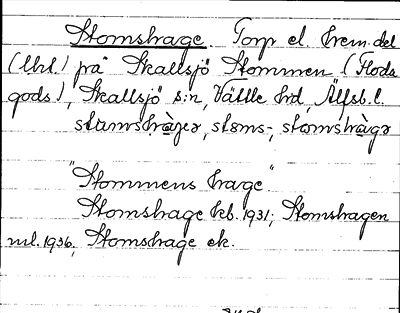 Stomshage. Torp el. hem.del
(Utd.) på Skallsjö Stommen (Floda
gods), Skallsjö s:n, Vättle hd, Älfsb. l.
stamshàgər, stoms-, stomshàgə
"Stommens hage".
Stomshage kb. 1931; Stomshagen
ml. 1936, Stomshage ek.